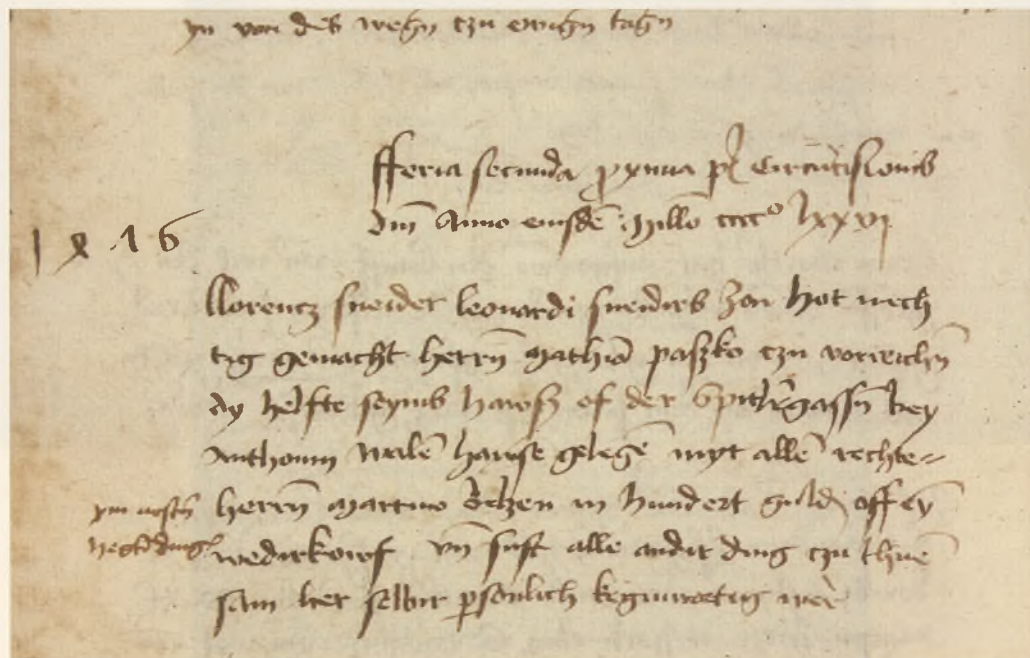 yn von des wegn czu ewign tagn
fferia secunda proxima pt Circucisionis
dni Anno eiusde Millo cccc° lxxvi
1 4 7 6
llorencz sneider leonardi sneidirs zon hot mech
tig gemacht herrn Mathia paszko czu vorreichn
dy helfte seynis hawsz of der Spitlirgassn bey
Anthonin Wale hawse gelege myt alle rechte
herrn Martino in hundert guld off ey
wedirkowf vn sust alle andir ding czu thue
sam her selbir psonlich keginwortig wer
ym nestn